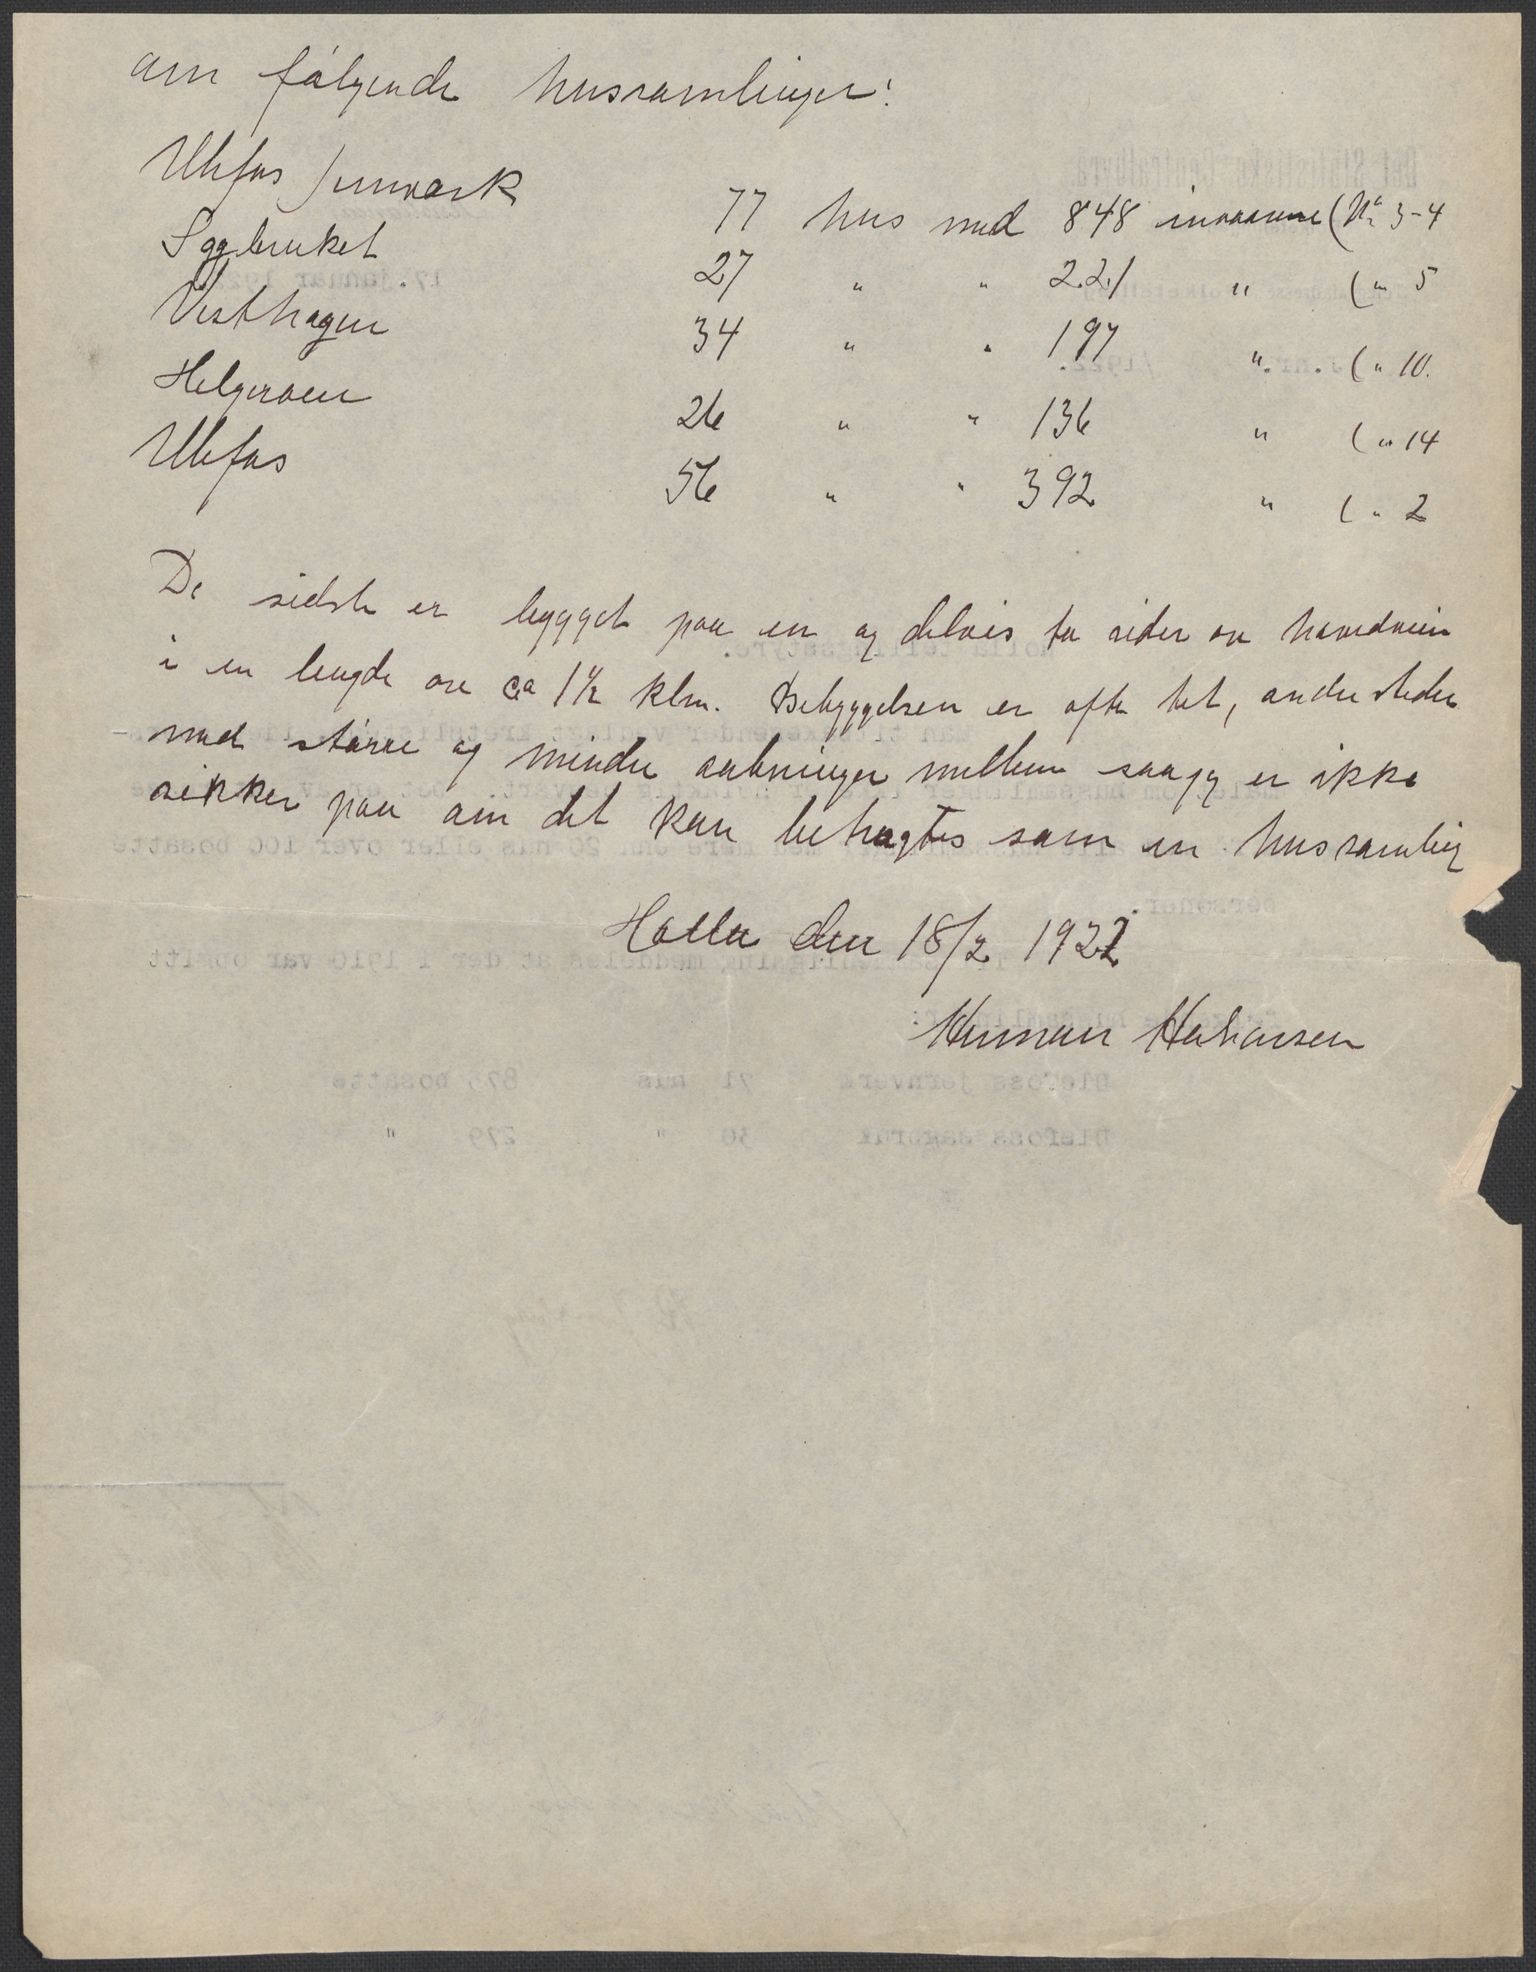 om følgende hussamlinger:
Ulefos Jernværk 77 hus med 848 invaanere (Nr 3-4
Sagbruket 27 " " 221 " ( " 5
Vesthagen 34 " " 197 " ( " 10.
Helgeroen 26 " " 136 " ( " 14
Ulefos 56 " " 392 " ( " 2
De sidste er bygget paa en og delvis to sider av hovedveien
i en lengde av ca 1½ klm. Bebyggelsen er ofte tet, andre steder
med større og mindre aabninger mellem saa jeg er ikke
sikker paa om det kan betragtes som en hussamling
Holla den 18/2 1922
Herman